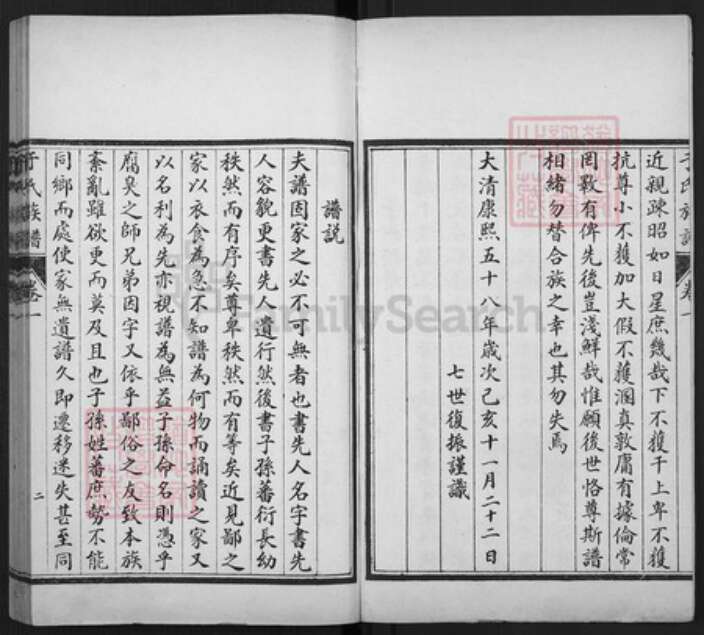 于氏族譜 卷一
近親疎昭如日星庶幾哉下不獲干上卑不獲
抗尊小不獲加大假不獲溷真敦庸有據倫常
罔斁有俾先後豈淺鮮哉惟願後世恪尊斯譜
相緒勿替合族之幸也其勿失焉
大清康熙五十八年歲次己亥十一月二十二日
七世復振謹識
譜説
夫譜固家之必不可無者也書先人名字書先
人容貌更書先人遺行然後書子孫蕃衍長幼
秩然而有序矣尊卑秩然而有等矣近見鄙之
家以衣食為急不知譜為何物而誦讀之家又
以名利為先亦視譜為無益子孫命名則憑乎
腐臭之師兄弟因字又依乎鄙俗之友致本族
紊亂雖欲更而莫及且也子孫姓蕃庶勢不能
同鄉而處使家無遺譜久即遷移迷失甚至同
于氏族譜 卷一 二
FamilySearch